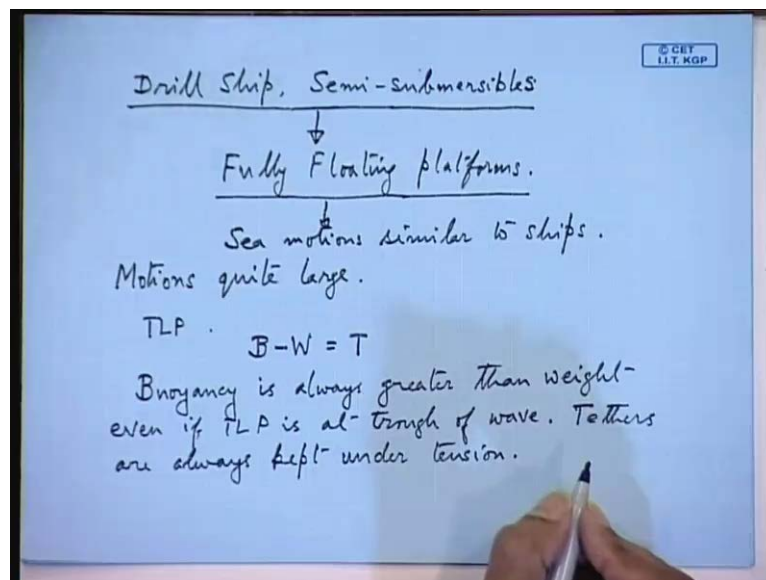 © CET
I.I.T. KGP
Drill Ship, Semi-submersibles
Fully Floating platforms.
Sea motions similar to ships.
Motions quite large.
TLP.
B-W = T
Buoyancy is always greater than weight
even if TLP is at trough of wave. Tethers
are always kept under tension.